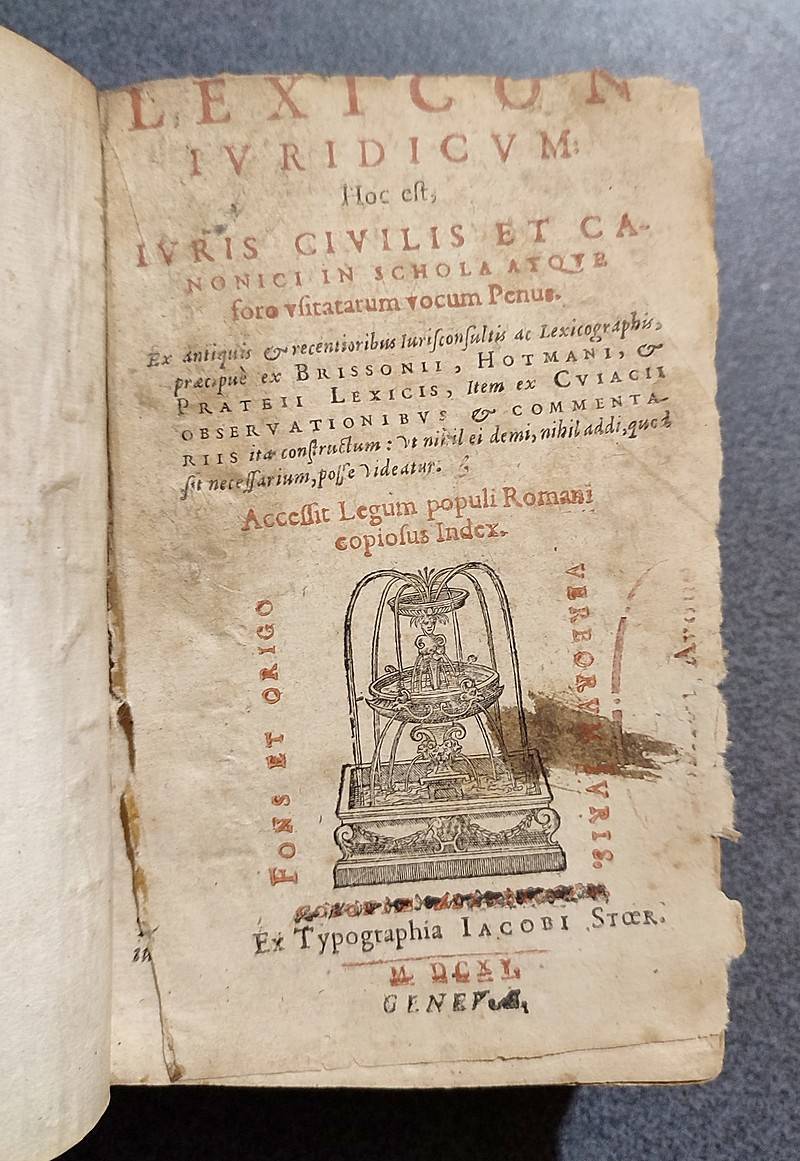 LEXICON
IVRIDICVM:
Hoc eſt,
IVRIS CIVILIS ET CA-
NONICI IN SCHOLA ATQVE
foro vſitatarum vocum Penus.
Ex antiquis & recentioribus Iuriſconſultis ac Lexicographis,
præcipuè ex BRISSONII, HOTMANI, &
PRATEII LEXICIS, Item ex CVIACII
OBSERVATIONIBVS & COMMENTA-
RIIS ita conſtructum: vt nihil ei demi, nihil addi, quod
ſit neceſſarium, poſſe videatur.
Acceſſit Legum populi Romani
copioſus Index.
FONS ET ORIGO
VERBORVM IVRIS.
Ex Typographia IACOBI STŒR.
M DCXI,
GENEVÆ,